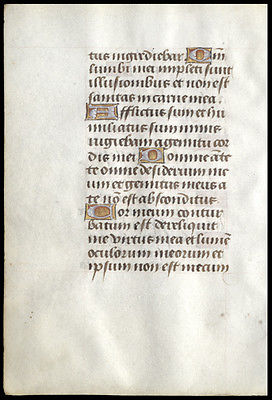 tus ingrediebar. Qm
lumbi mei impleti sunt
illusionibus et non est
sanitas in carne mea.
Afflictus sum et hu
miliatus sum nimis
rugiebam a gemitu cor
dis mei Domine ante
te omne desiderium me
um et gemitus meus a
te non est absconditus
Cor meum contur
batum est dereliquit
me virtus mea et lumen
oculorum meorum et
ipsum non est mecum